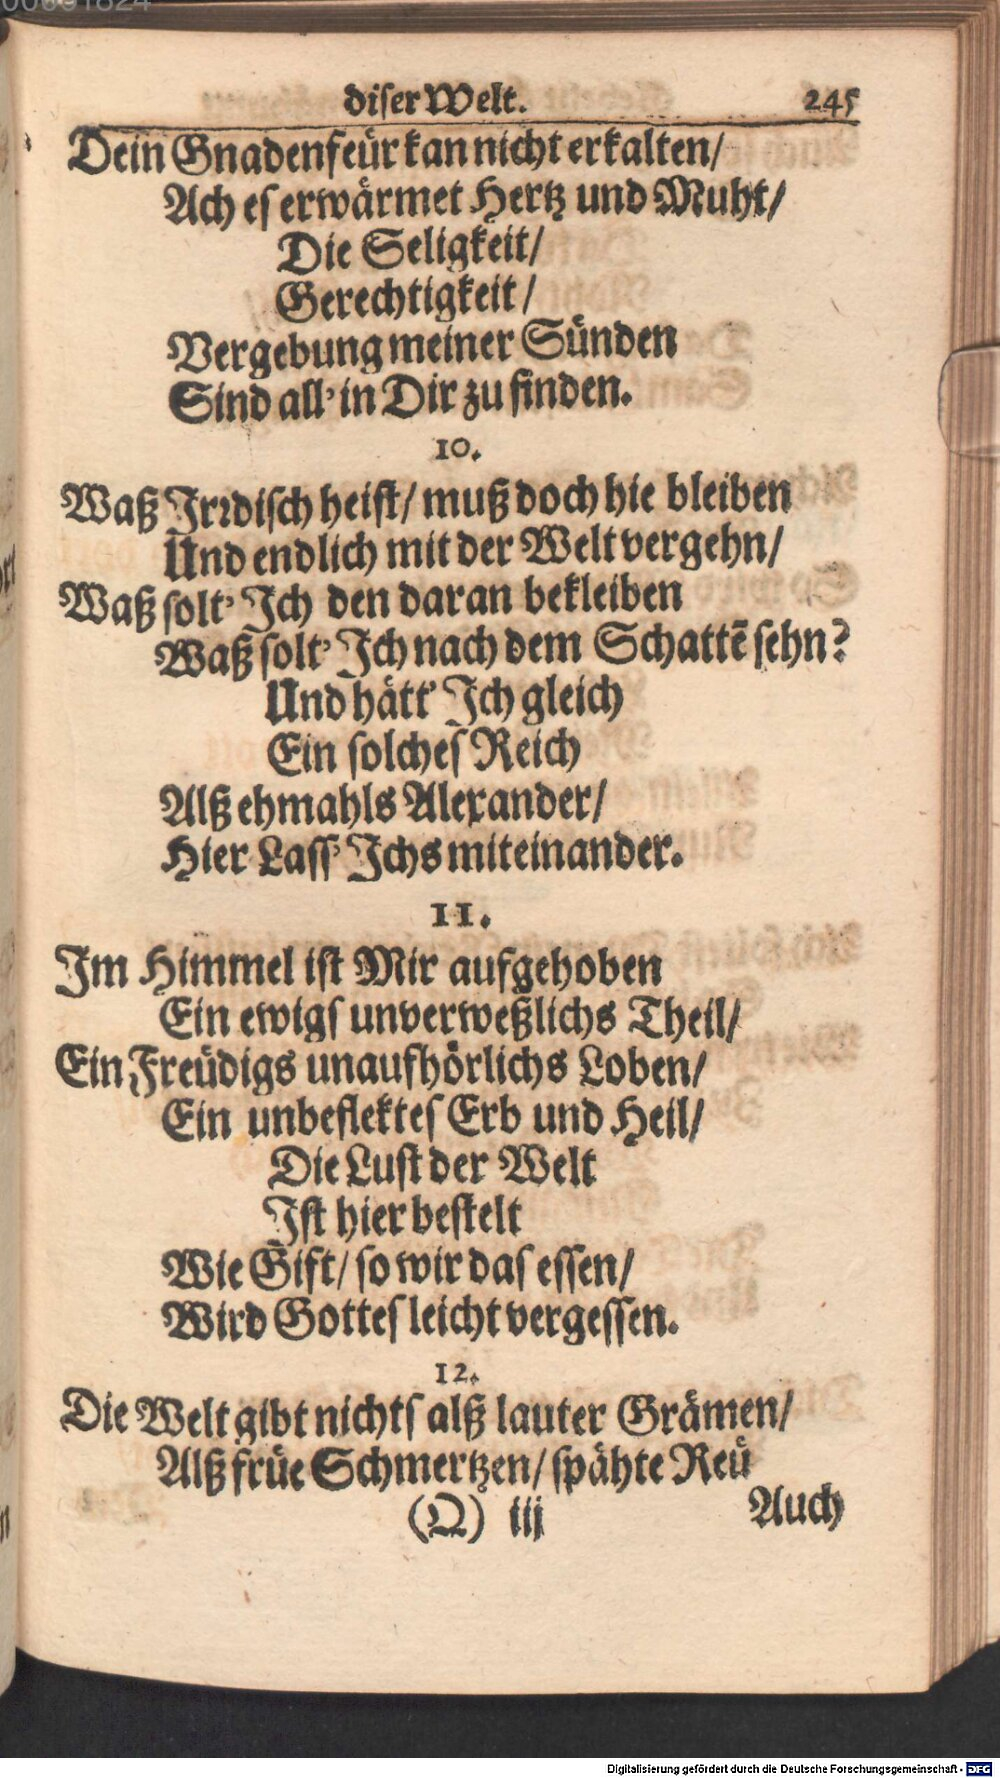 diser Welt. 245
Dein Gnadenfeür kan nicht erkalten/
Ach es erwärmet Hertz und Muht/
Die Seligkeit/
Gerechtigkeit/
Vergebung meiner Sünden
Sind all' in Dir zu finden.
10.
Waß Jrꝛdisch heist/ muß doch hie bleiben
Und endlich mit der Welt vergehn/
Waß solt' Jch den daran bekleiben
Waß solt' Jch nach dem Schattē sehn?
Und hätt' Jch gleich
Ein solches Reich
Alß ehmahls Alexander/
Hier Lass' Jchs miteinander.
11.
Jm Himmel ist Mir aufgehoben
Ein ewigs unverweßlichs Theil/
Ein Freüdigs unaufhörlichs Loben/
Ein unbeflektes Erb und Heil/
Die Lust der Welt
Jst hier bestelt
Wie Gift/ so wir das essen/
Wird Gottes leicht vergessen.
12.
Die Welt gibt nichts alß lauter Grämen/
Alß früe Schmertzen/ spähte Reü
(Q) iij Auch
Digitalisierung gefördert durch die Deutsche Forschungsgemeinschaft - DFG